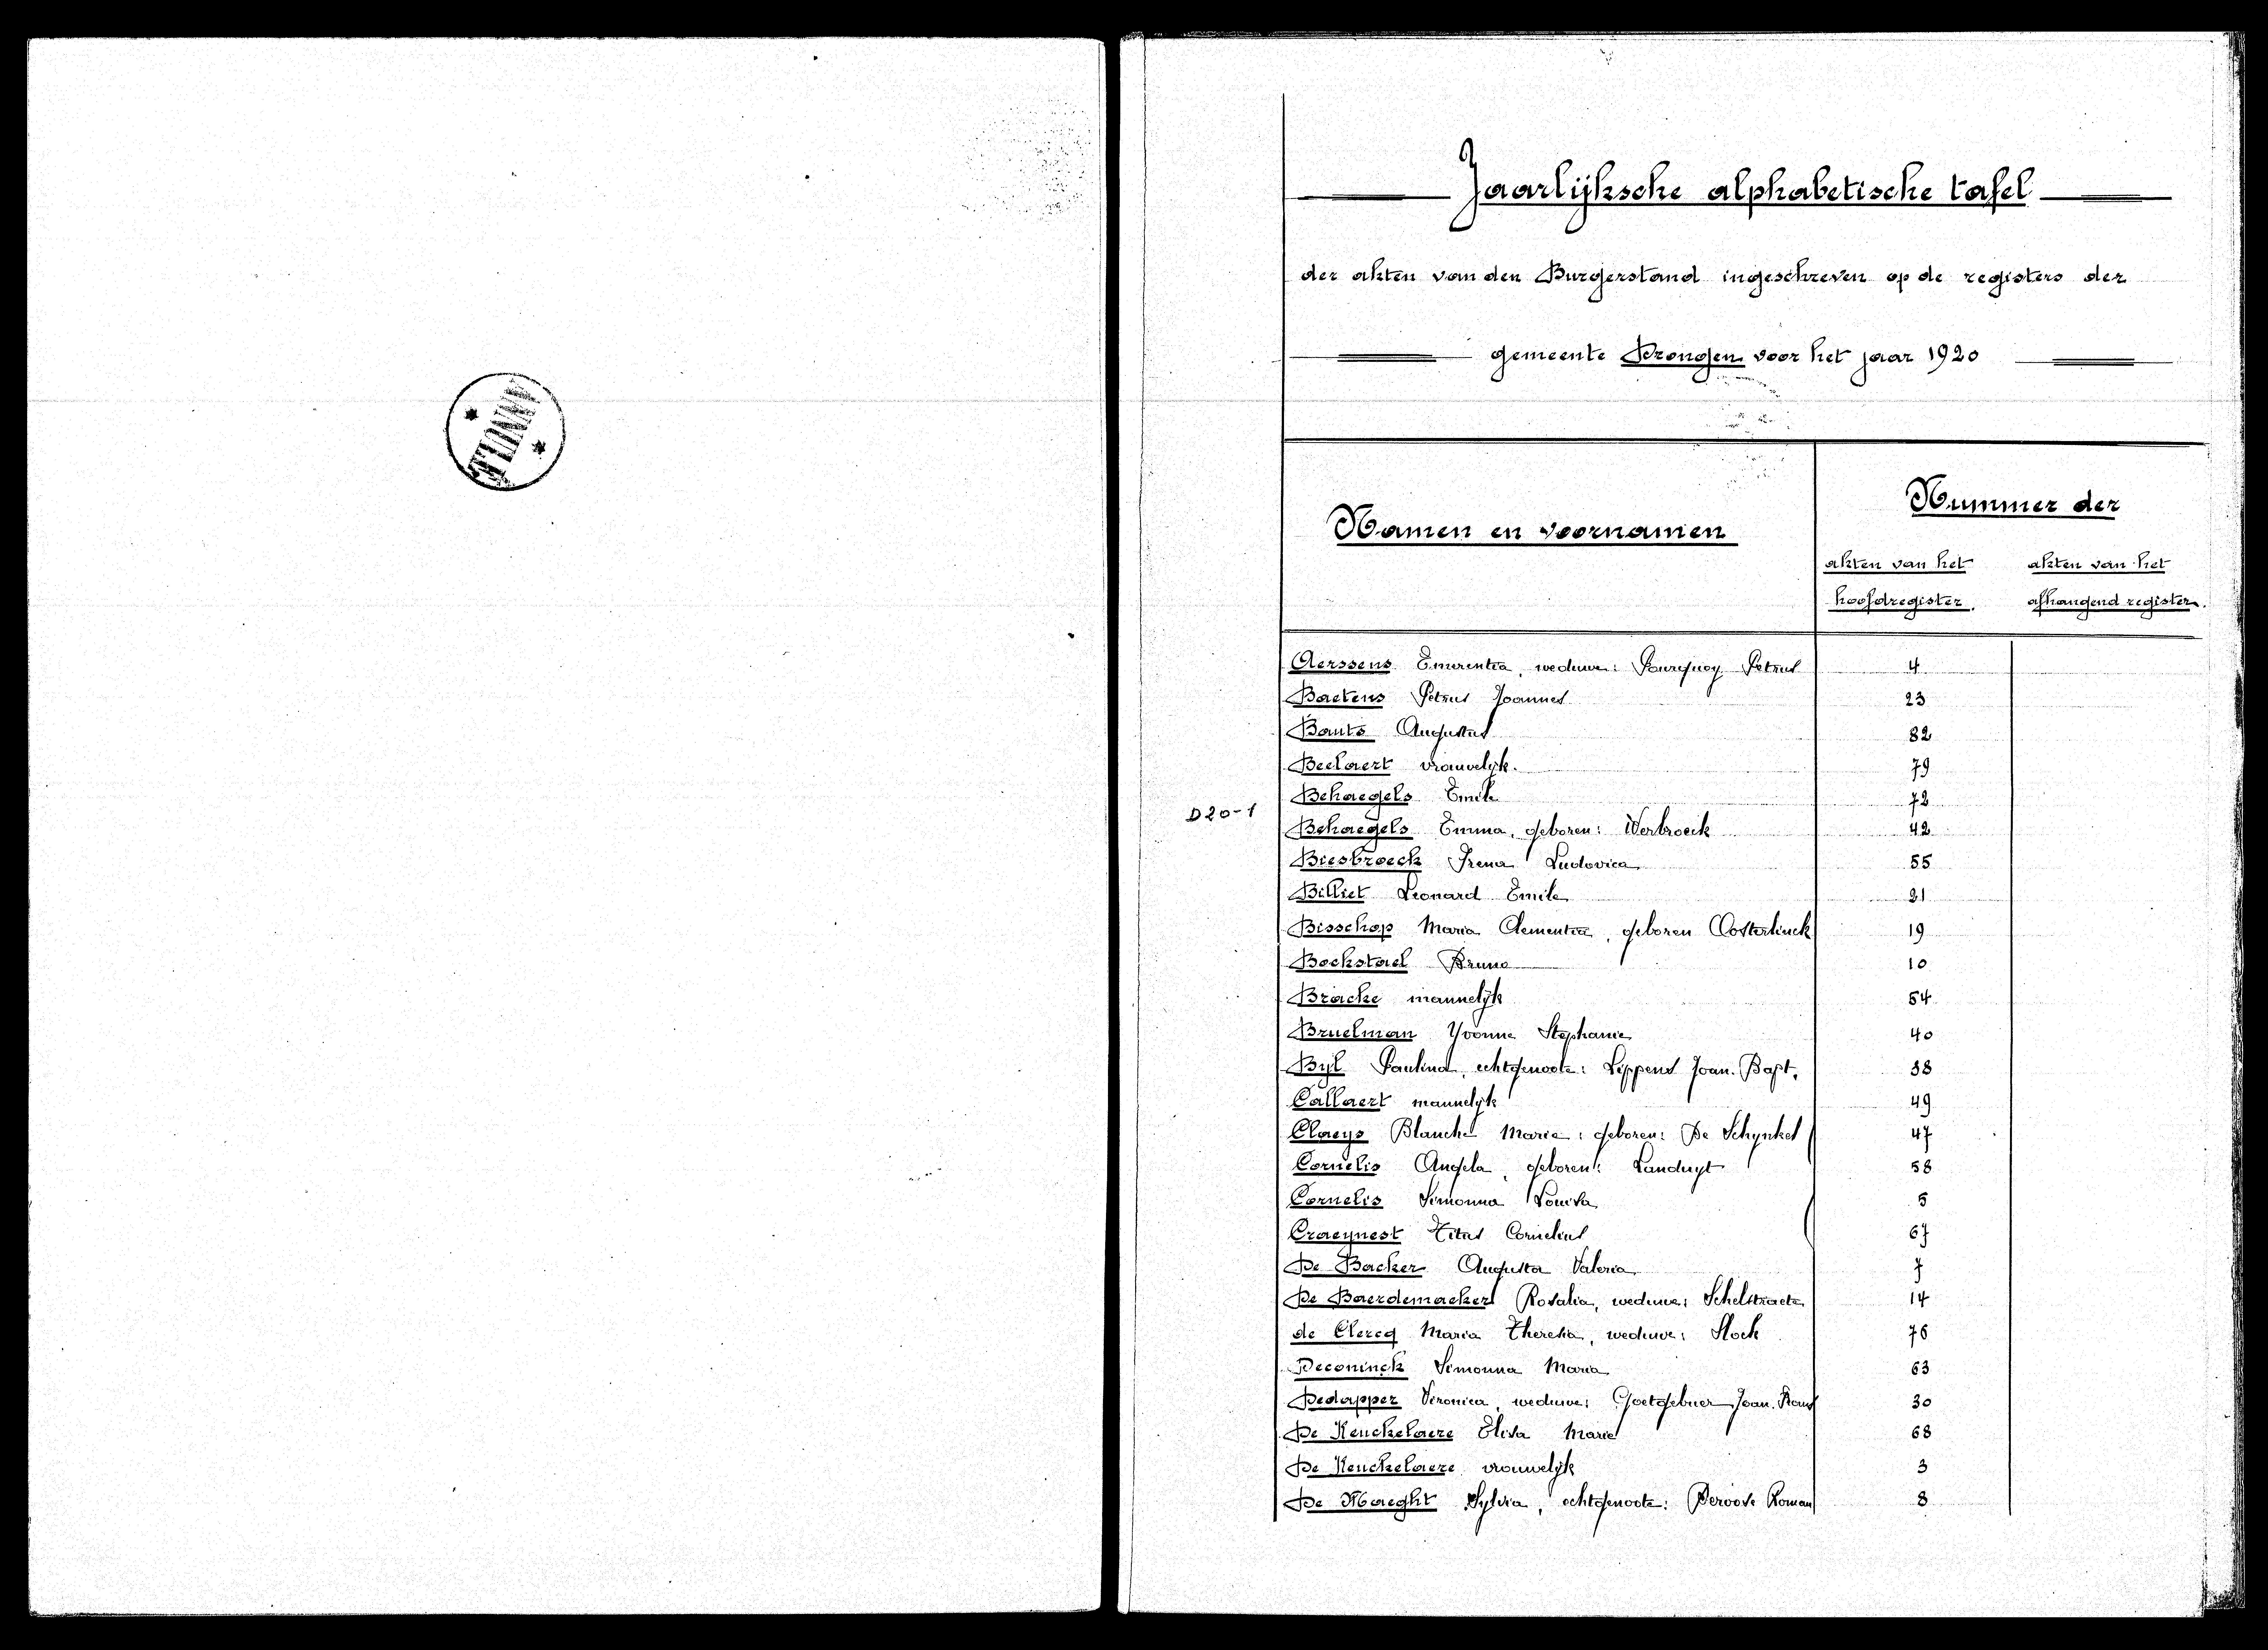 ANNULÉ
Jaarlijksche alphabetische tafel
der akten van den Burgerstand ingeschreven op de registers der
gemeente Drongen voor het jaar 1920
Namen en voornamen
Nummer der
akten van het akten van het
hoofdregister. afhangend register.
Aerssens Emerentia, weduwe: Pourquoy Petrus 4
Baetens Petrus Joannes 23
Bauts Augustus 82
Beelaert vrouwelijk. 79
Behaegels Emile 72
D20-1
Behaegels Emma, geboren: Verbroeck 42
Biesbroeck Irena Ludovica 55
Billiet Leonard Emile 21
Bisschop Maria Clementia, geboren Oosterlinck 19
Bockstael Bruno 10
Bracke mannelijk 54
Bruelman Yvonne Stephanie 40
Byl Paulina, echtgenoote: Lippens Joan. Bapt. 38
Callaert mannelijk 49
Claeys Blanche Marie: geboren: De Schynkel 47
Cornelis Angela, geboren: Landuyt 58
Cornelis Simonna Louisa 5
Craeynest Titus Cornelius 67
De Backer Augusta Valeria 7
De Baerdemaeker Rosalia, weduwe: Schelstraete 14
de Clercq Maria Theresia, weduwe: Stock 76
Deconinck Simonna Maria 63
Dedapper Veronica, weduwe: Goetgebuer Joan. Frans 30
De Keuckelaere Elisa Marie 68
De Keuckelaere vrouwelijk 3
De Maeght Sylvia, echtgenoote: Deroose Roman 8